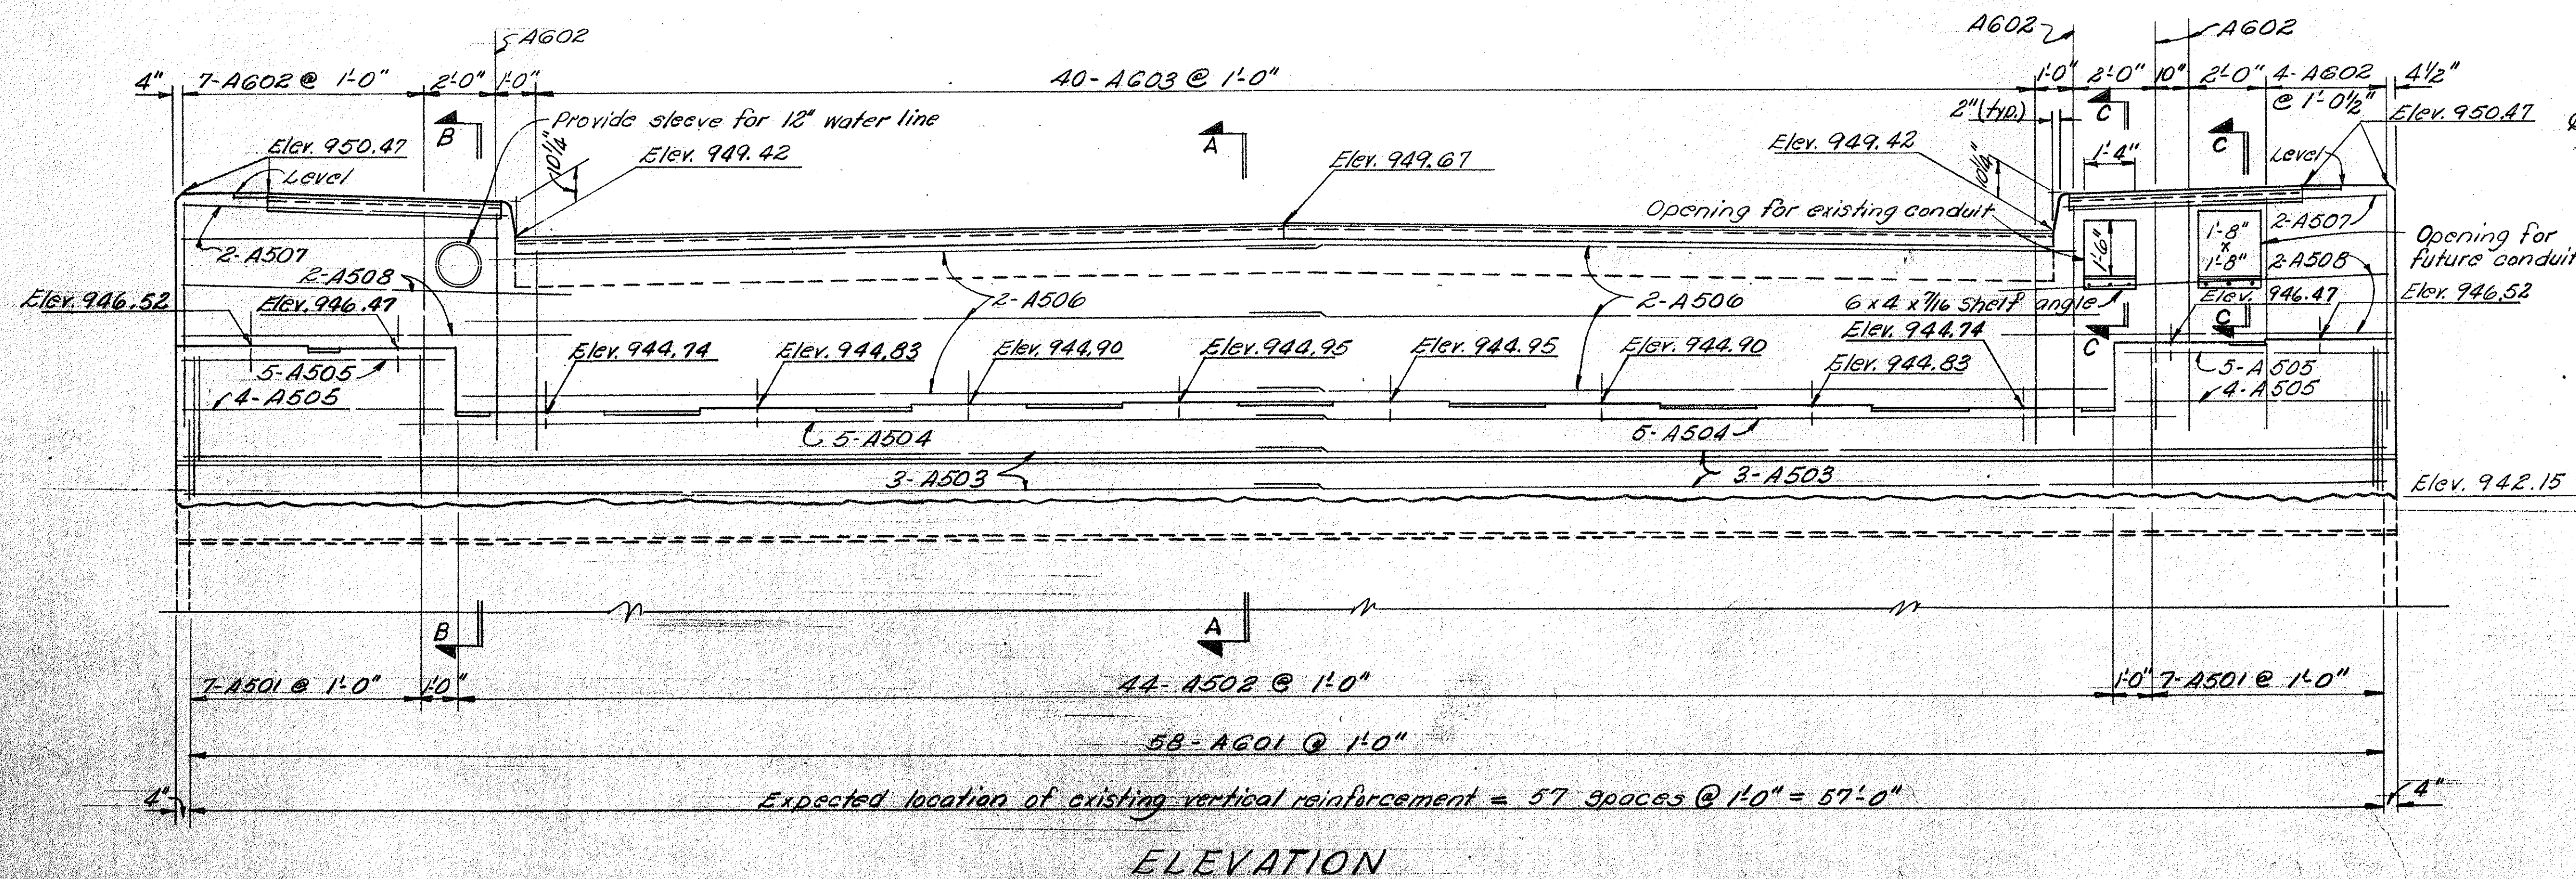 A602
A602
A602
4"
7-A602 @ 1'-0"
2'-0"
1'-0"
40-A603 @ 1'-0"
1'-0"
2'-0"
10"
2'-0"
4-A602
@ 1'-0½"
4½"
B
Provide sleeve for 12" water line
10¼"
A
2"(typ.)
C
C
Elev. 950.47
Elev. 950.47
Level
Elev. 949.42
Elev. 949.67
Elev. 949.42
10¼"
1'-4"
Level
Opening for existing conduit
2-A507
2-A507
1'-6"
1'-8"
x
1'-8"
Opening for
future conduit
2-A508
2-A508
Elev. 946.52
Elev. 946.47
2-A506
2-A506
6 x 4 x 7/16 shelf angle
Elev. 946.47
Elev. 946.52
C
C
Elev. 944.74
Elev. 944.83
Elev. 944.90
Elev. 944.95
Elev. 944.95
Elev. 944.90
Elev. 944.74
Elev. 944.83
5-A505
4-A505
5-A505
4-A505
5-A504
5-A504
3-A503
3-A503
Elev. 942.15
B
A
7-A501 @ 1'-0"
1'-0"
44-A502 @ 1'-0"
1'-0"
7-A501 @ 1'-0"
58-A601 @ 1'-0"
4"
Expected location of existing vertical reinforcement = 57 spaces @ 1'-0" = 57'-0"
4"
ELEVATION